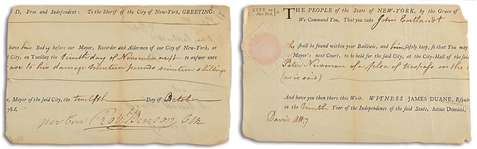 D, Free and Independent: To the Sheriff of the City of New-York, GREETING:
his Body before our Mayor, Recorder and Aldermen of our City of New-York, at
City, on Tuesday the Ninth day of November next to answer unto
use to his damage Nineteen pounds nineteen shillings
Mayor of the said City, the twelfth Day of October
Robt Benson Clk
CITY OF
New-York
THE PEOPLE of the State of NEW-YORK, by the Grace of
We Command You, That you take John Cortlandt
if he shall be found within your Bailiwick, and him safely keep, so that You may
Mayor's next Court, to be held for the said City, at the City-Hall of the said
Peter Vrooman of a plea of trespass on the
And have you then there this Writ. WITNESS JAMES DUANE, Esquire
in the ninth Year of the Independence of the said State, Annoq; Domini,
Davis Atty